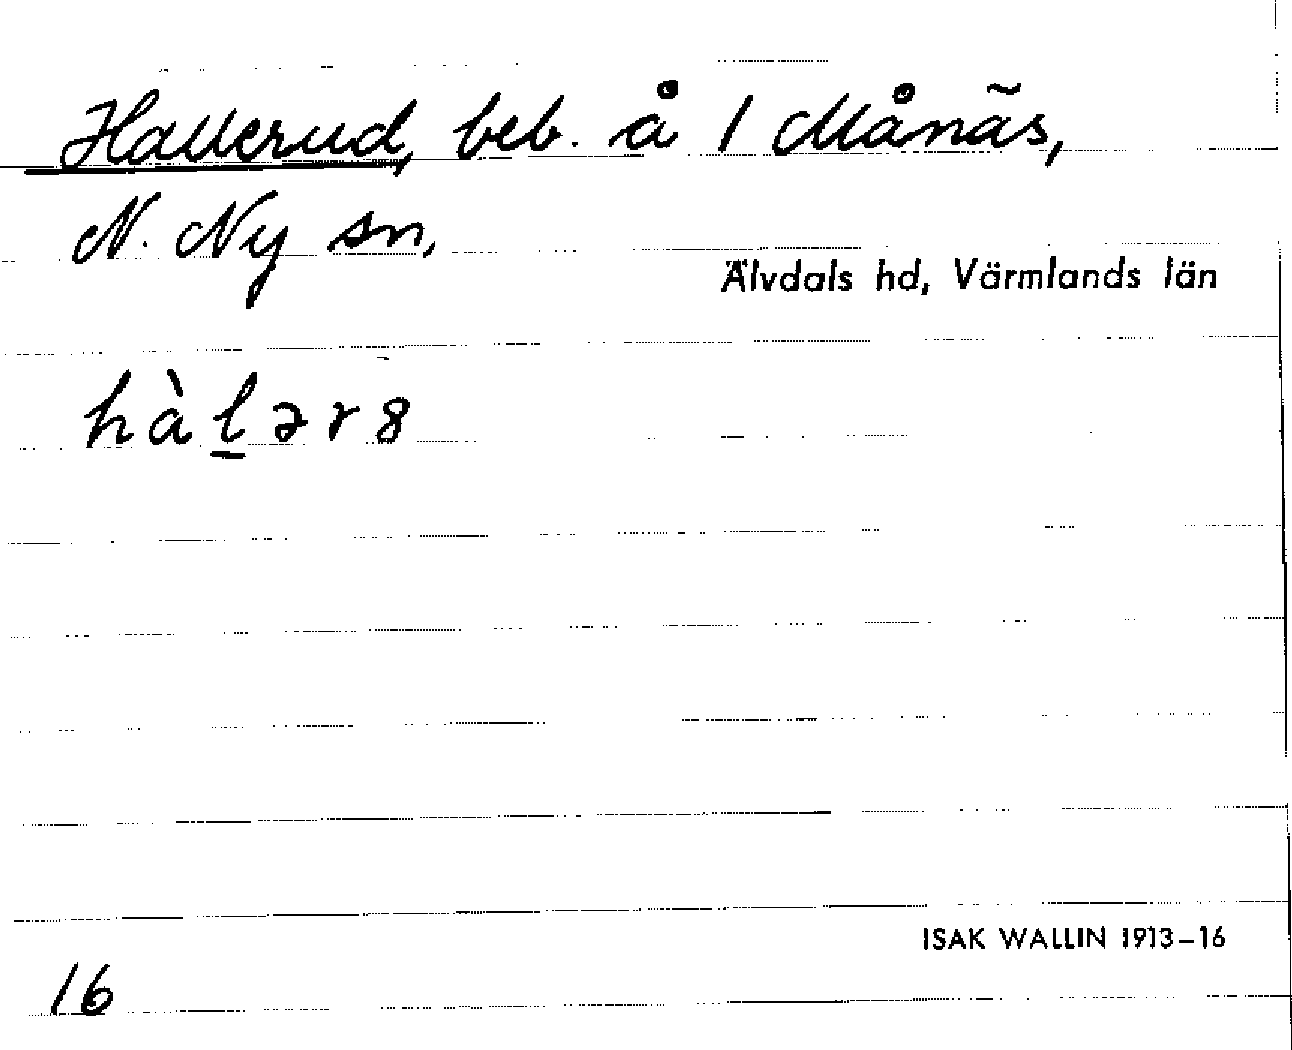 Hallerud, beb. å 1 Månäs,
N. Ny sn,
Älvdals hd, Värmlands län
hàḻər8
ISAK WALLIN 1913–16
16